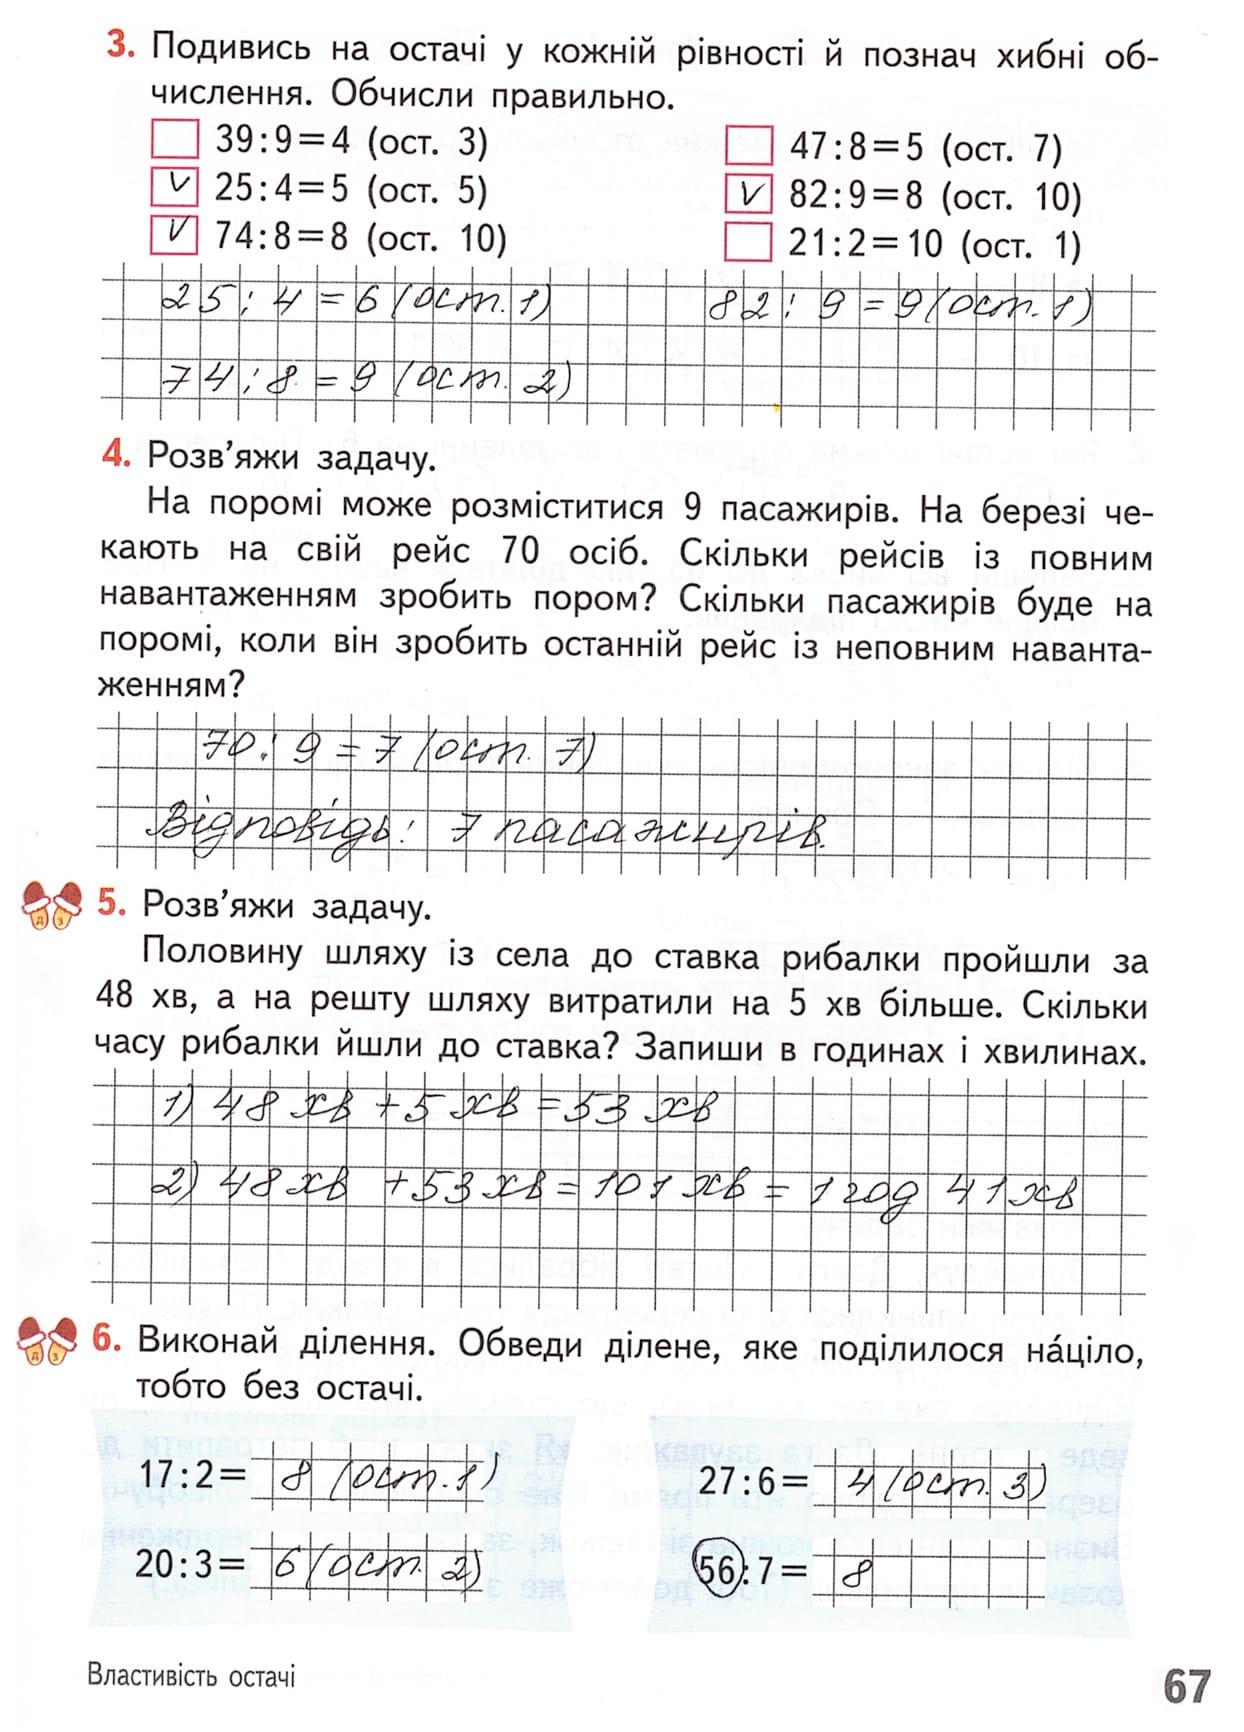 3. Подивись на остачі у кожній рівності й познач хибні об-
числення. Обчисли правильно.
39:9=4 (ост. 3)
47:8=5 (ост. 7)
V 25:4=5 (ост. 5)
V 82:9=8 (ост. 10)
V 74:8=8 (ост. 10)
21:2=10 (ост. 1)
25:4=6(ост.1)
82:9=9(ост.1)
74:8=9(ост.2)
4. Розв’яжи задачу.
На поромі може розміститися 9 пасажирів. На березі че-
кають на свій рейс 70 осіб. Скільки рейсів із повним
навантаженням зробить пором? Скільки пасажирів буде на
поромі, коли він зробить останній рейс із неповним наванта-
женням?
70:9=7(ост.7)
Відповідь: 7 пасажирів.
5. Розв’яжи задачу.
Половину шляху із села до ставка рибалки пройшли за
48 хв, а на решту шляху витратили на 5 хв більше. Скільки
часу рибалки йшли до ставка? Запиши в годинах і хвилинах.
1) 48 хв + 5 хв = 53 хв
2) 48 хв + 53 хв = 101 хв = 1 год 41 хв
6. Виконай ділення. Обведи ділене, яке поділилося на́ціло,
тобто без остачі.
17:2= 8 (ост.1)
27:6= 4(ост.3)
20:3= 6(ост.2)
56:7= 8
Властивість остачі
67